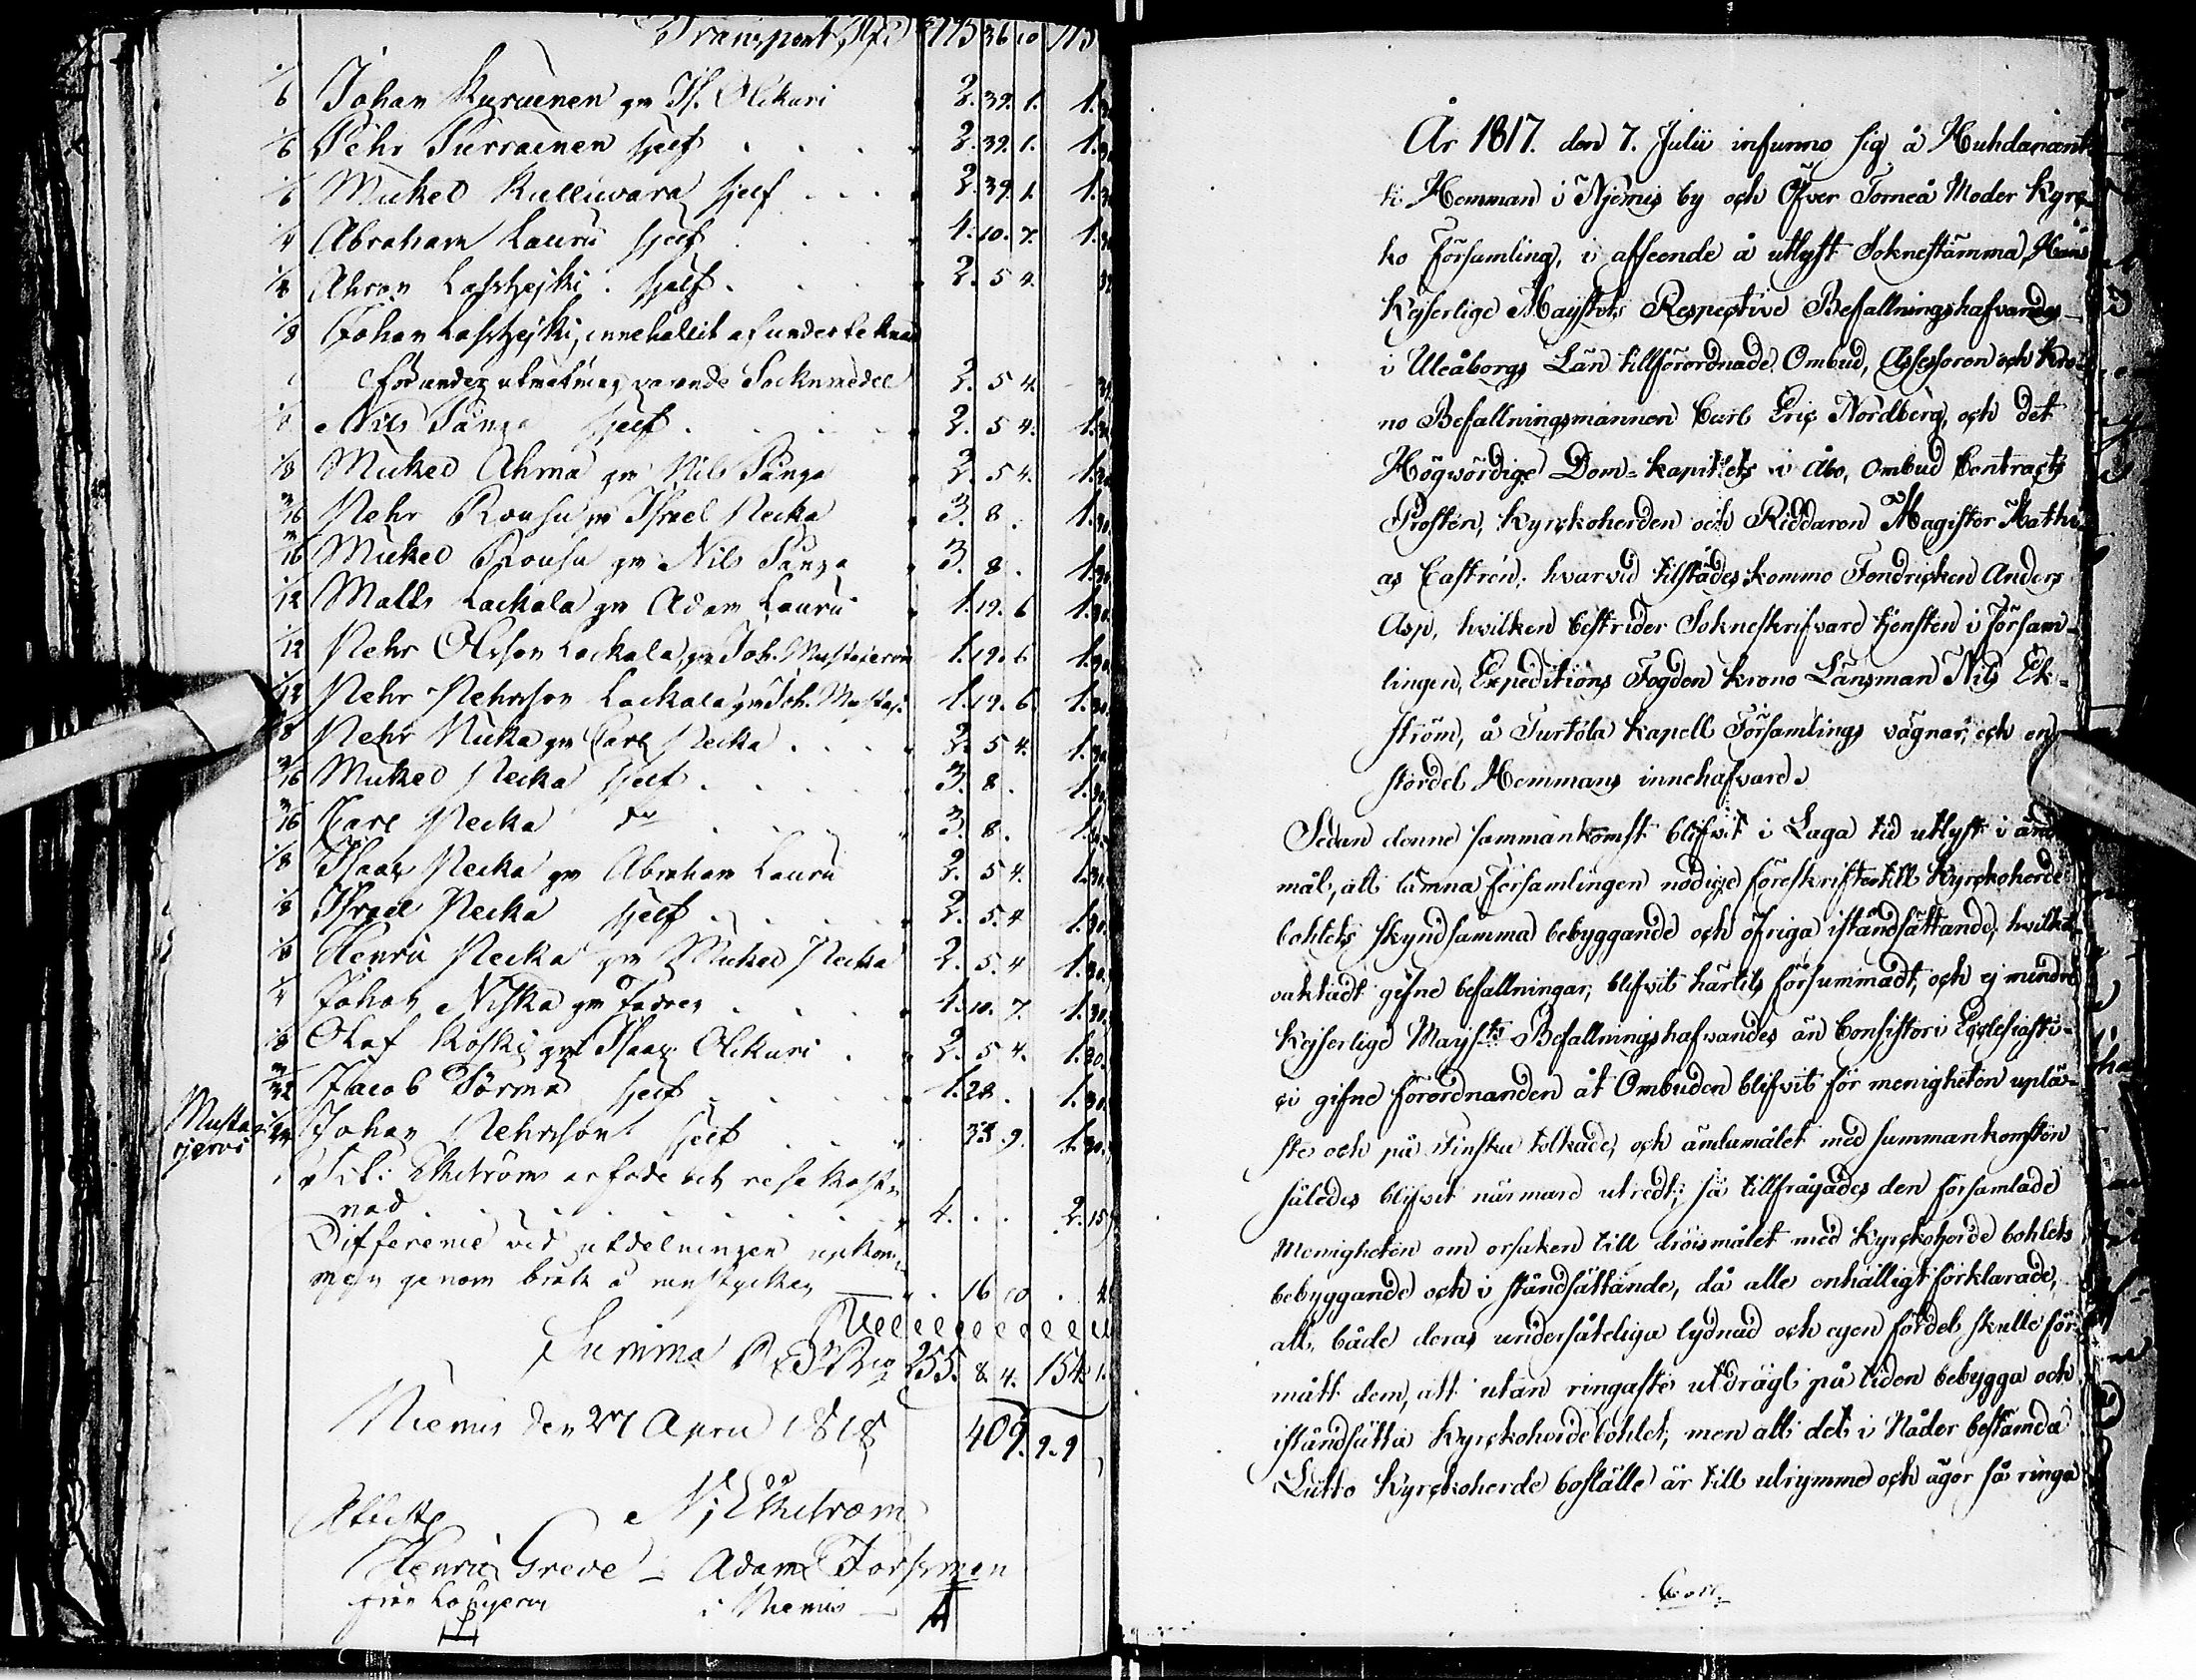 Transport 175 36 10 115
1/6 Johan Kuruenen gm Is. Olckari 2. 39. 1. 1.
1/6 Pehr Purrainen sjelf 2. 39. 1. 1.
1/6 Mickel Kulliwara sjelf 2. 39. 1. 1.
1/4 Abraham Lauru sjelf 4. 10. 7. 1.
1/8 Ahron sjelf 2. 5 4.
1/8 Johan innehållit af underteknad
för under utmätning varande Socknmedel 2. 5 4.
1/8 Nils Pänge sjelf 2. 5 4. 1.
1/8 Mickel Ahma gm Nils Pänga 2. 5 4. 1.
3/16 Pehr Rousu gm Israel Necka 3. 8. 1.30.
3/16 Mickel Rousu gm Nils Pänga 3. 8. 1.30.
1/12 Matts Lackala gm Adam Lauru 1. 19. 6 1.30.
1/12 Pehr Olsson Lackala, gm Joh. Mustajerwi 1. 19. 6. 1.30.
1/12 Pehr Pehrsson Lackala gm Joh. Mustaj. 1. 19. 6. 1.30.
1/8 Pehr Necka gm Carl Necka 2. 5 4. 1.30.
3/16 Mickel Necka sjelf 3. 8. 1.30.
3/16 Carl Necka do 3. 8. 1.
1/8 Isaac Necka gm Abraham Lauru 2. 5 4. 1.30.
1/8 Israel Necka sjelf 2. 5. 4 1.30.
1/8 Henric Necka gm Mickel Necka 2. 5. 4 1.30.
1/4 Johan Niska gm Fadren 4. 10. 7. 1.30.
1/8 Olof Koski gm Isaac Olckari 2. 5 4. 1.30.
3/32 Jacob Törma sjelf 1. 28. 1.30.
Mustajerwi 1/24 Johan Pehrsson sjelf 33. 9. 1.30.
Tit: Ekströms arfode och resekostnad 4. 2. 15
Difference vid utdelningen upkommen
genom bråk å runstycken 16 10
Summa R 255. 8. 4. 154. 1.
Niemis den 27 April 1818 409. 9. 9
N: Ekström
Attesta
Henric Greve – Adam Forsman
från Lohijerwi i Niemis
År 1817. den 7. Julii infunno sig å Huhdanænt-
ti Hemman i Njemis by och Öfver Torneå Moder Kyrc-
ko Församling, i afseende å utlyst Sokneståmma, Hans
Kejserlige Maijstets Respective Befallningshafvandes
i Uleåborgs Län tillförordnade Ombud, Assessoren och Kro-
no Befallningsmannen Carl Eric Nordberg, och det
Högwördige Dom=kapitlets i Åbo, Ombud Contracts
Prosten, Kyrckoherden och Riddaren Magister Mathi-
as Castrén; hvarvid tilstädes kommo Fendricken Anders
Asp, hvilken bestrider Sokneskrifvare tjensten i Försam-
lingen, Expeditions Fogden Krono Länsman Nils Ek-
ström, å Turtola Kapell Församlings vägnar, och en
stördel Hemmans innehafvare.
Sedan denne sammankomst blifvit i Laga tid utlyst i ända-
mål, att lämna Församlingen nödige föreskrifter till Kyrckoherde
bohlets skyndsamma bebyggande och öfriga iståndsättande, hvilket
oaktadt gifne befallningar, blifvit härtils försummadt, och ej mindre
Kejserlige Maijsts Befallningshafvandes än Consistorii Ecclesiasti-
ci gifne förordnanden åt Ombuden blifvit för menigheten uplä-
ste och på Finska tolkade, och ämlumålet med sammankomsten
således blifvit närmare utredt; så tillfrågades den församlade
Menigheten om orsaken till dröismålet med Kyrckoherde bohlets
bebyggande och i ståndsättande, då alle enhälligt förklarade,
att, både deras undersåteliga lydnad och egen fördel skulle för-
mått dem, att utan ringaste utdrägt på tiden bebygga och
iståndsätta Kyrckoherdebohlet, men att det i Nåder bestämda
Lutto Kyrckoherde boställe är till utrymme och ägor så ringa